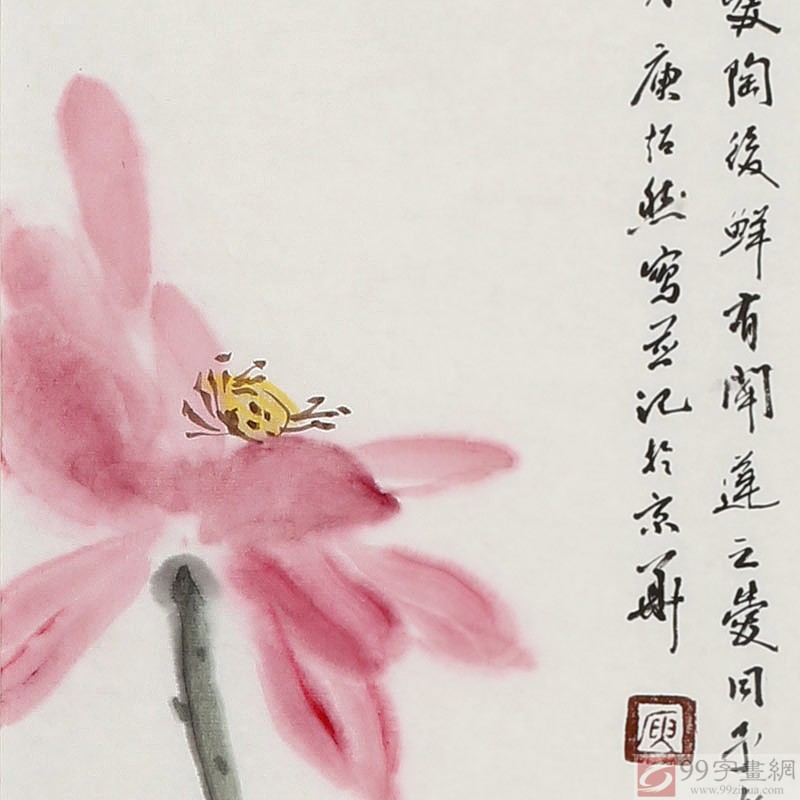 爱陶後鮮有聞蓮之愛同予
庚超然寫並記於京華
庾
99字畫網
www.99zihua.com